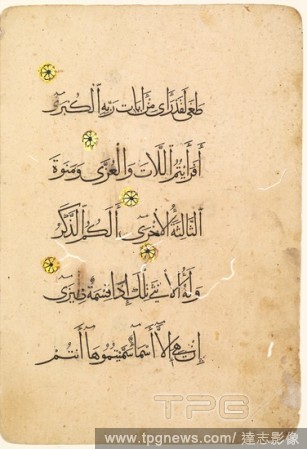 طغى لقد رأى من آيات ربه الكبرى
أفرأيتم اللات والعزى ومنوة
الثالثة الأخرى ألكم الذكر
وله الأنثى تلك إذا قسمة ضيزى
إن هي إلا أسماء سميتموها أنتم
TPG
www.tpgnews.com/ 達志影像